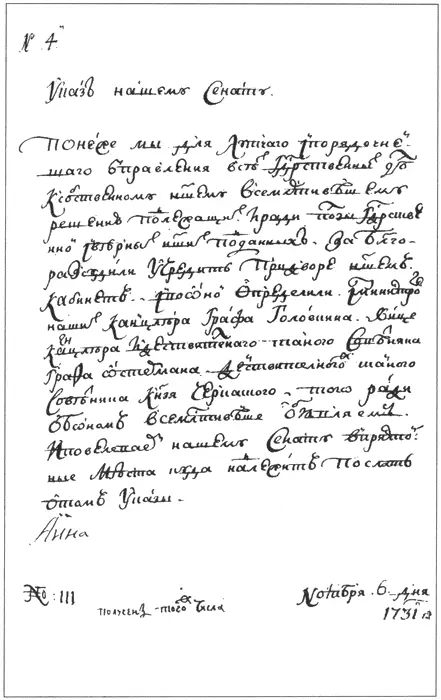 № 4
Указъ нашему Сенату.
Понеже мы для лутчаго и порядочнѣ
шаго управления всѣ гдрственны дѣ
к собственному нашему всемлтивѣшему
решению подлежащи и ради ползы гдрстве
нно и вѣрны нши подданныхъ. За благо
разсудили учредить при дворе нашемъ
Кабинетъ. и во оно определили. из министро
наши канцлера графа Головкина. Вице
канцлера и дѣствителного таиного совѣтника
графа Остермана. дѣствителного таиного
совѣтника князя Черкаского. того ради
о всемилостивѣше объявляемъ
и повелеваемъ нашему Сенату в
ные мѣста куда надлежитъ послать
о томъ указы.
Анна
№: 111
получен того числа
Ноября 6 дня
1731 г